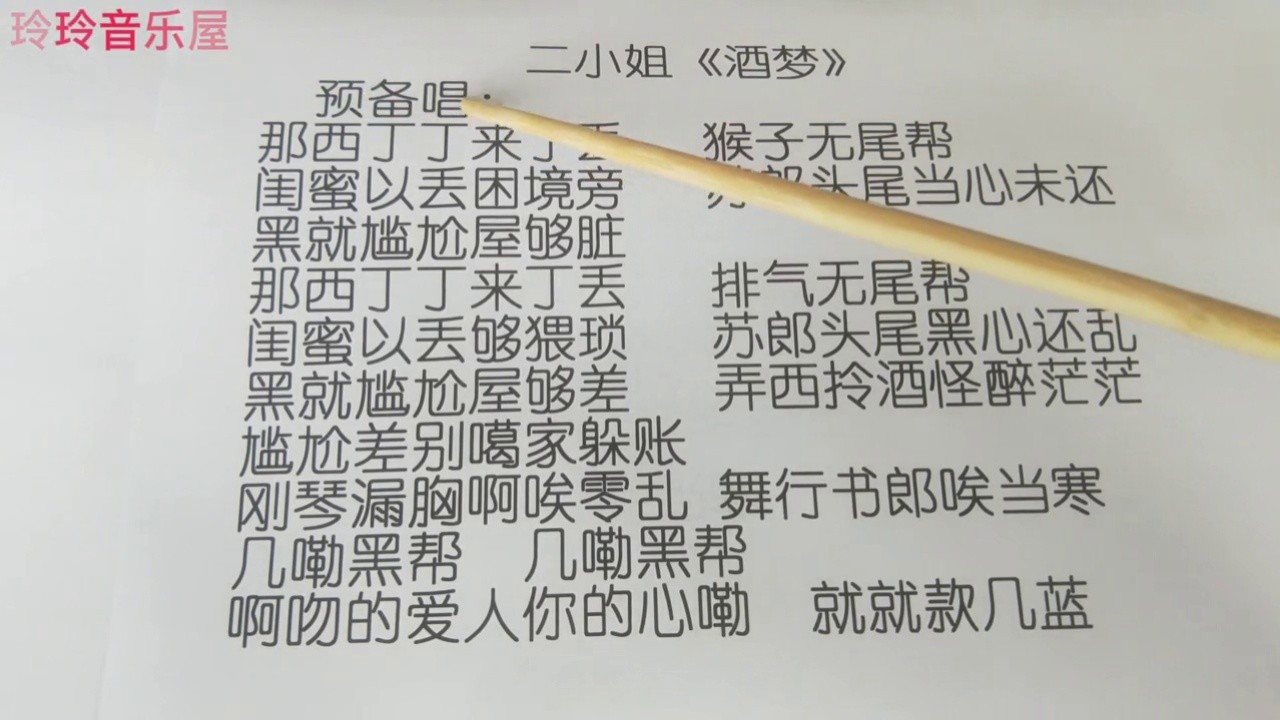 玲玲音乐屋
二小姐《酒梦》
预备唱:
那西丁丁来丁丢 猴子无尾帮
闺蜜以丢困境旁 苏郎头尾当心未还
黑就尴尬屋够脏
那西丁丁来丁丢 排气无尾帮
闺蜜以丢够猥琐 苏郎头尾黑心还乱
黑就尴尬屋够差 弄西拎酒怪醉茫茫
尴尬差别噶家躲账
刚琴漏胸啊唉零乱 舞行书郎唉当寒
几嘞黑帮 几嘞黑帮
啊吻的爱人你的心嘞 就就款几蓝